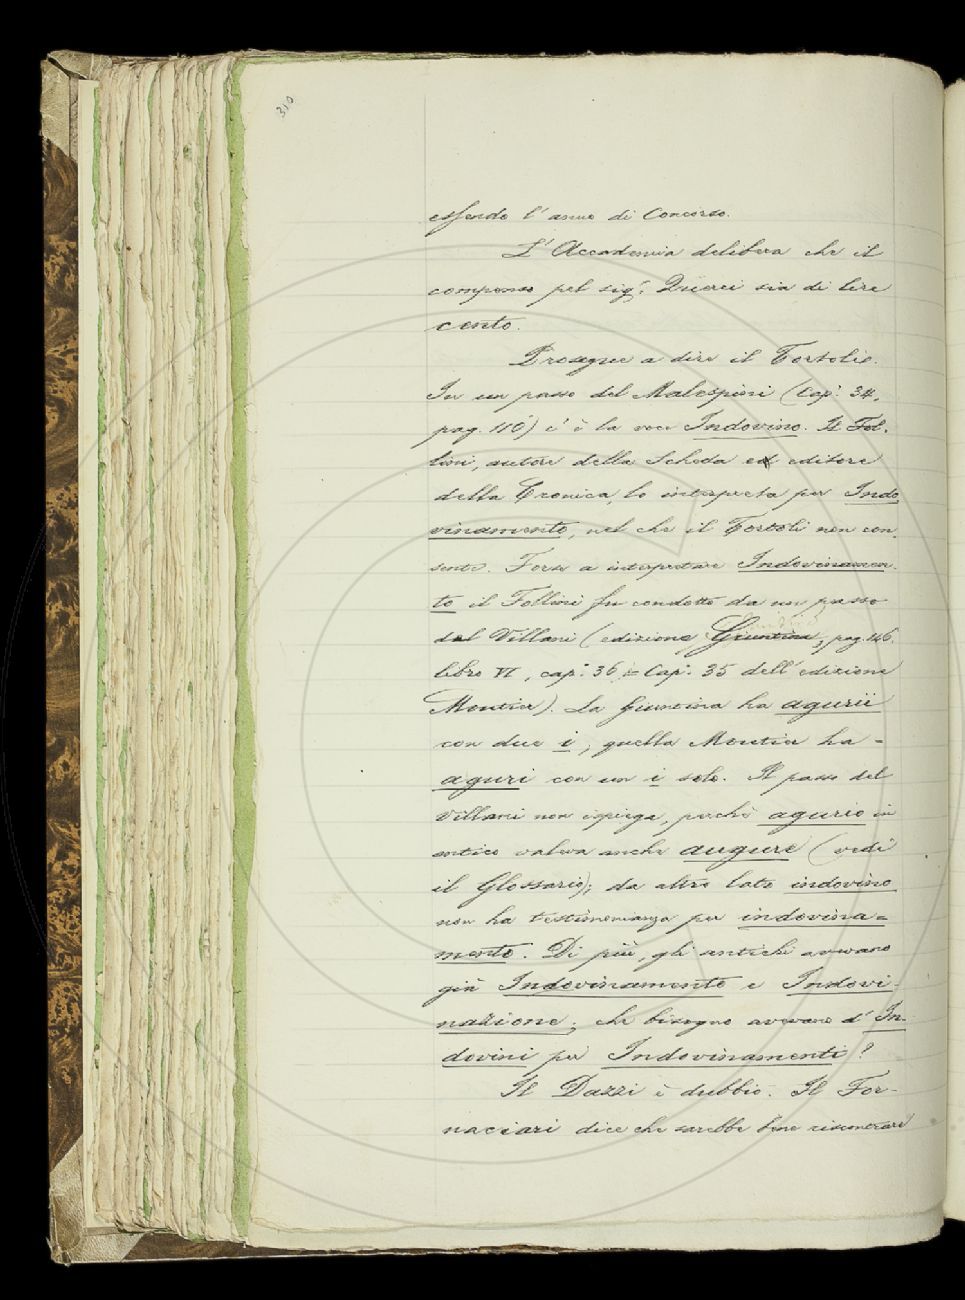 310
essendo l'anno di Concorso.
L'Accademia delibera che il
compenso pel sigr. Querci sia di lire
cento.
Prosegue a dire il Tortoli:
In un passo del Malespini (Cap. 34,
pag. 110) c'è la voce Indovino. Il Fol-
lini, autore della Scheda ed editore
della Cronica, lo interpreta per Indo
vinamento, nel che il Tortoli non con-
sente. Forse a interpretare Indovinamen-
to il Follini fu condotto da un passo
del Villani (edizione Giuntina, pag. 146.
libro VI, cap. 36 = Cap. 35 dell'edizione
Moutier). La Giuntina ha agurii
con due i, quella Moutier ha =
aguri con un i solo. Il passo del
Villani non ispiega, perchè agurio in
antico valeva anche augure (vedi
il Glossario); da altro lato indovino
non ha testimonianza per indovina=
mento. Di più, gli antichi avevano
già Indovinamento e Indovi-
nazione; che bisogno avevano d'In-
dovini per Indovinamenti?
Il Dazzi è dubbio. Il For-
naciari dice che sarebbe bene riscontrare